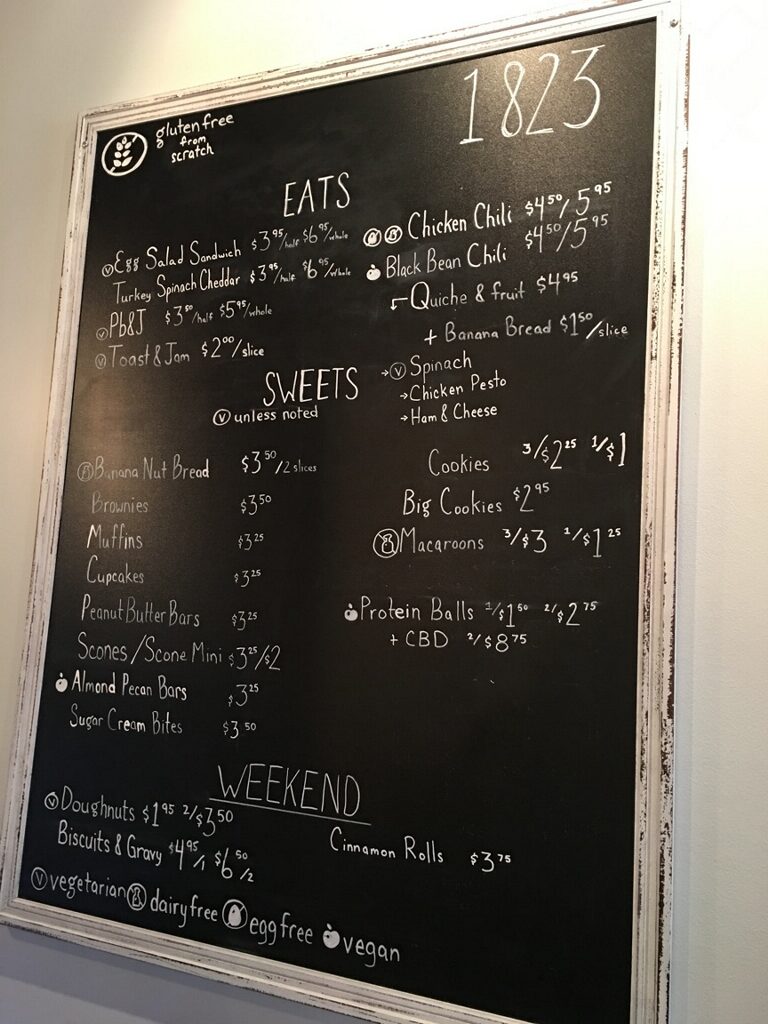 1823
gluten free
from
scratch
EATS
Ⓥ Egg Salad Sandwich $3.95/half $6.95/whole
Turkey Spinach Cheddar $3.95/half $6.95/whole
Ⓥ Pb&J $3.50/half $5.95/whole
Ⓥ Toast & Jam $2.00/slice
Chicken Chili $4.50/5.95
Black Bean Chili $4.50/5.95
Quiche & fruit $4.95
+ Banana Bread $1.50/slice
→Ⓥ Spinach
→Chicken Pesto
→Ham & Cheese
SWEETS
Ⓥ unless noted
Banana Nut Bread $3.50/2 slices
Brownies $3.50
Muffins $3.25
Cupcakes $3.25
Peanut Butter Bars $3.25
Scones/Scone Mini $3.25/$2
Almond Pecan Bars $3.25
Sugar Cream Bites $3.50
Cookies 3/$2.25 1/$1
Big Cookies $2.95
Macaroons 3/$3 1/$1.25
Protein Balls 1/$1.50 2/$2.75
+ CBD 2/$8.75
WEEKEND
Ⓥ Doughnuts $1.95 2/$3.50
Biscuits & Gravy $4.95/1 $6.50/2
Cinnamon Rolls $3.75
Ⓥ vegetarian dairy free egg free vegan